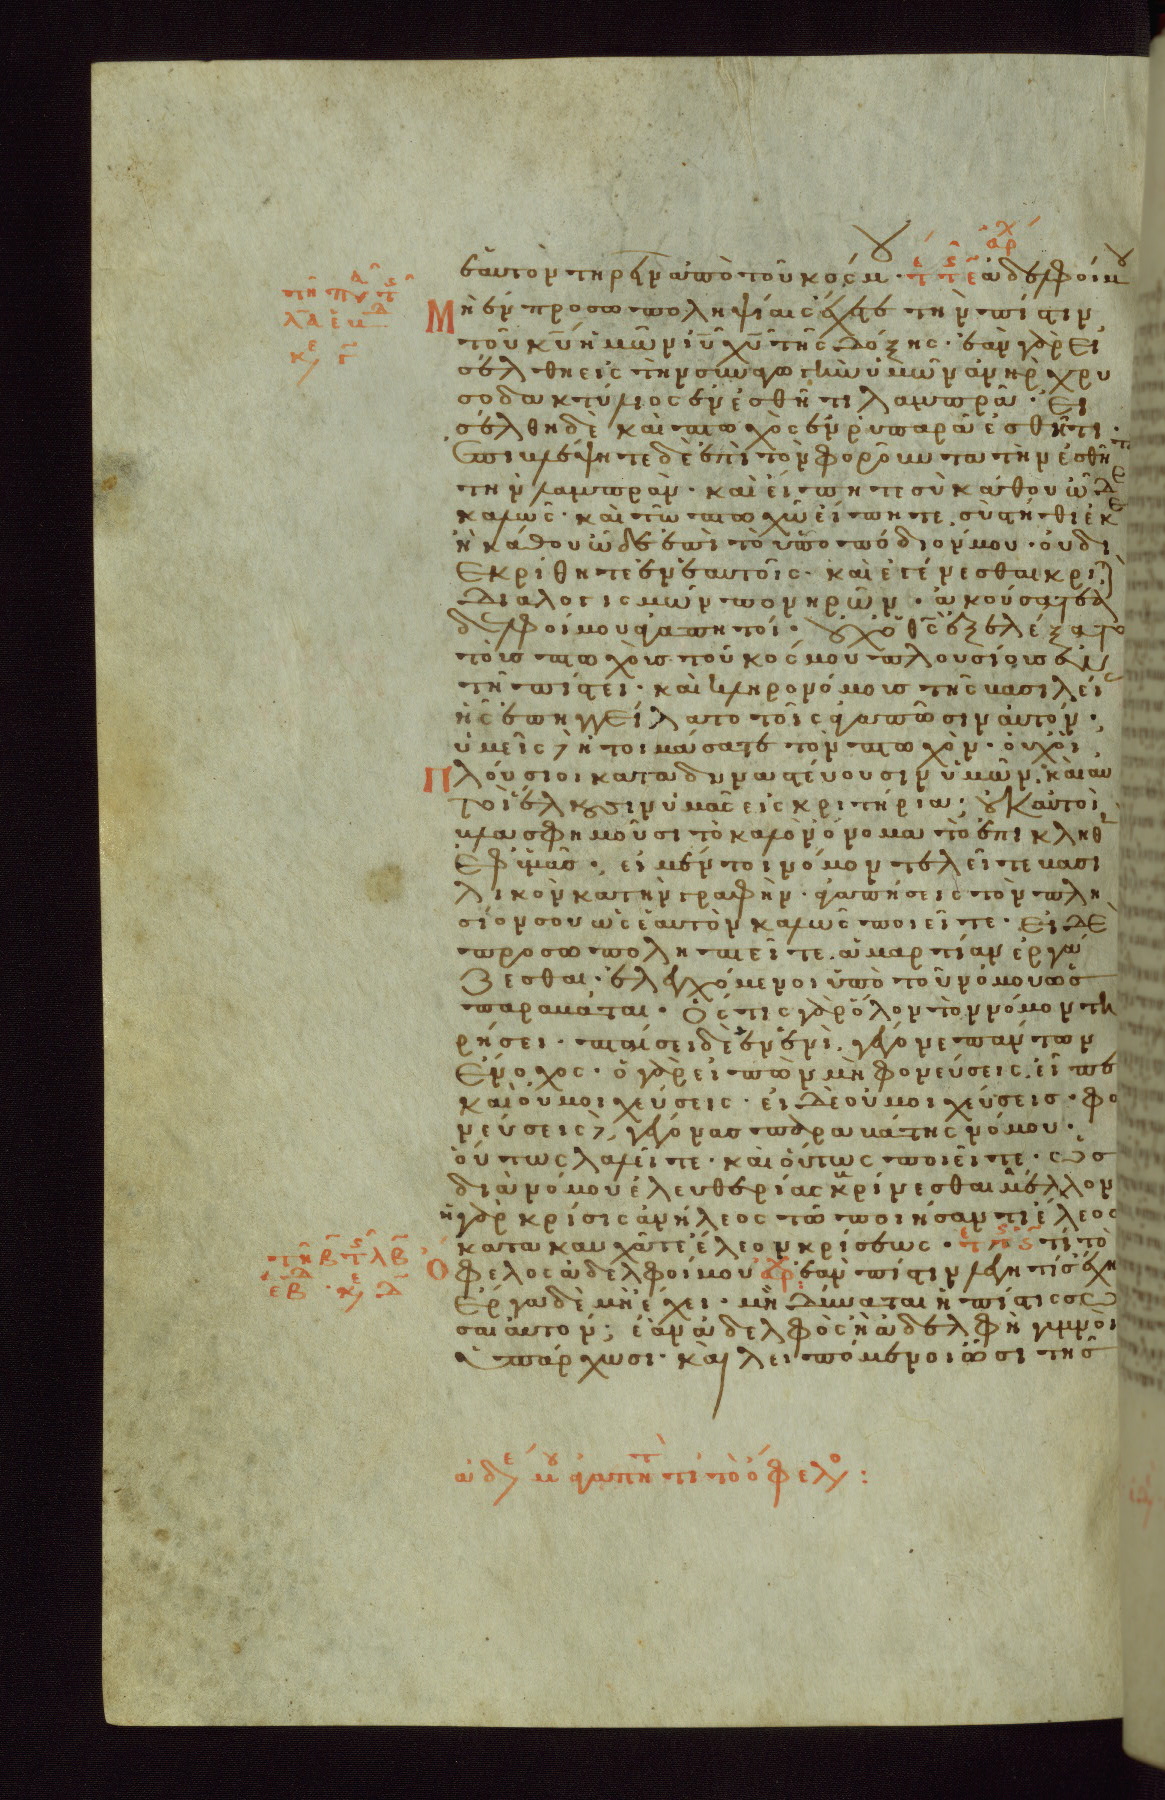 ἑαυτὸν τηρεῖν ἀπὸ τοῦ κόσμου · ἀδελφοί μου
Μὴ ἐν προσωποληψίαις ἔχετε τὴν πίστιν
τοῦ κυ ἡμῶν ιυ χυ τῆς δόξης · ἐὰν γὰρ εἰ
σέλθη εἰς τὴν συναγωγὴν ὑμῶν ἀνὴρ χρυ
σοδακτύλιος ἐν ἐσθῆτι λαμπρᾶ · εἰ
σέλθη δὲ καὶ πτωχὸς ἐν ῥυπαρᾶ ἐσθῆτι ·
ἐπιβλέψητε δὲ ἐπὶ τὸν φοροῦντα τὴν ἐσθῆτα
τὴν λαμπρὰν · καὶ εἴπητε σὺ κάθου ὧδε
καλῶς · καὶ τῶ πτωχῶ εἴπητε σὺ στῆθι ἐκεῖ
ἢ κάθου ὧδε ἐπὶ τὸ ὑποπόδιόν μου · οὐ δι
εκρίθητε ἐν ἑαυτοῖς · καὶ ἐγένεσθαι κριταὶ
διαλογισμῶν πονηρῶν · ἀκούσατε ἀ
δελφοί μου ἀγαπητοί · οὐχ ὁ θς ἐξελέξατο
τοὺς πτωχοὺς τοῦ κόσμου πλουσίους ἐν
τῆ πίστει · καὶ κληρονόμους τῆς βασιλεί
ἧς ἐπηγγείλατο τοῖς ἀγαπῶσιν αὐτόν ·
ὑμεῖς δὲ ἠτοιμάσατε τὸν πτωχὸν · οὐχ οἱ
πλούσιοι καταδυναστεύουσιν ὑμῶν · καὶ αὐ
τοὶ ἕλκουσιν ὑμᾶς εἰς κριτήρια ; οὐκ αὐτοὶ
βλασφημοῦσι τὸ καλὸν ὄνομα τὸ ἐπικληθὲν
ἐφ ὑμᾶς · εἰ μέντοι νόμον τελεῖτε βασι
λικὸν κατὰ τὴν γραφὴν · ἀγαπήσεις τὸν πλη
σίον σου ὡς ἑαυτὸν καλῶς ποιεῖτε · εἰ δὲ
προσωποληπτεῖτε ἁμαρτίαν ἐργά
ζεσθαι · ἐλεγχόμενοι ὑπὸ τοῦ νόμου ὡς
παραβάται · ὅστις γὰρ ὅλον τὸν νόμον τη
ρήσει · πταίσει δὲ ἐν ἑνὶ · γέγονε πάντων
ἔνοχος · ὁ γὰρ εἰπὼν μὴ φονεύσεις · εἶπε
καὶ οὐ μοιχεύσεις · εἰ δὲ οὐ μοιχεύσεις · φο
νεύσεις δὲ, γέγονας παραβάτης νόμου ·
οὕτως λαλεῖτε · καὶ οὕτως ποιεῖτε · ὡς
διὰ νόμου ἐλευθερίας κρίνεσθαι μέλλον
ἡ γὰρ κρίσις ἀνήλεος τῶ ποιήσαντι ἔλεος
κατακαυχᾶτε ἔλεον κρίσεως · τί τὸ
ὄφελος ἀδελφοί μου ἐὰν πίστιν λέγη τίς ἔχη
ἔργα δὲ μὴ ἔχει · μὴ δύναται ἡ πίστις σῶ
σαι αὐτόν ; ἐὰν ἀδελφὸς ἢ ἀδελφὴ γυμνοὶ
ὑπάρχωσι · καὶ λειπόμενοι ὦσι τῆς